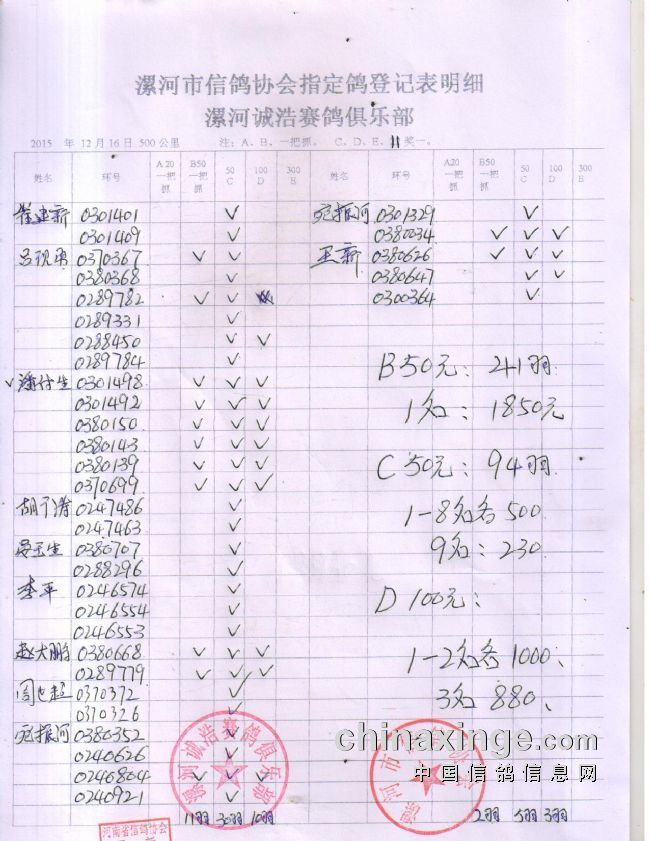 漯河市信鸽协会指定鸽登记表明细
漯河诚浩赛鸽俱乐部
2015 年 12月16日 500公里 注：A、B、一把抓。 C、D、E、 奖一。
姓名 环号 A20一把抓 B50一把抓 50 C 100 D 300 E 姓名 环号 A20一把抓 B50一把抓 50 C 100 D 300 E
崔建新 0301401 ✓
0301409 ✓
0370367 ✓ ✓
0380368 ✓
0289782 ✓ ✓
0289331 ✓
0288450 ✓ ✓
0289784 ✓
✓ 0301498 ✓ ✓ ✓
0301492 ✓ ✓ ✓
0380150 ✓ ✓ ✓
0380143 ✓ ✓ ✓
0380139 ✓ ✓ ✓
0370699 ✓ ✓ ✓
0247486 ✓
0247463 ✓
0380707 ✓
0288296 ✓
李平 0246574 ✓
0246554 ✓
0246553 ✓
赵大鹏 0380668 ✓ ✓ ✓
0289779 ✓ ✓ ✓
0370372 ✓
0370326 ✓
宛振河 0380352 ✓
0240626 ✓
0246804 ✓ ✓ ✓
0240921 ✓
11羽 30羽 10羽
宛振河 0301329 ✓
0380034 ✓ ✓ ✓
王新 0380626 ✓ ✓ ✓
0380647 ✓ ✓
0300364 ✓
B50元：41羽
1名：1850元
C 50元：94羽
1-8名各500
9名：230
D 100元：
1-2名各1000、
3名 880、
2羽 5羽 3羽
漯河诚浩赛鸽俱乐部
漯河市
河南省信鸽协会
chinaxinge.com
中国信鸽信息网